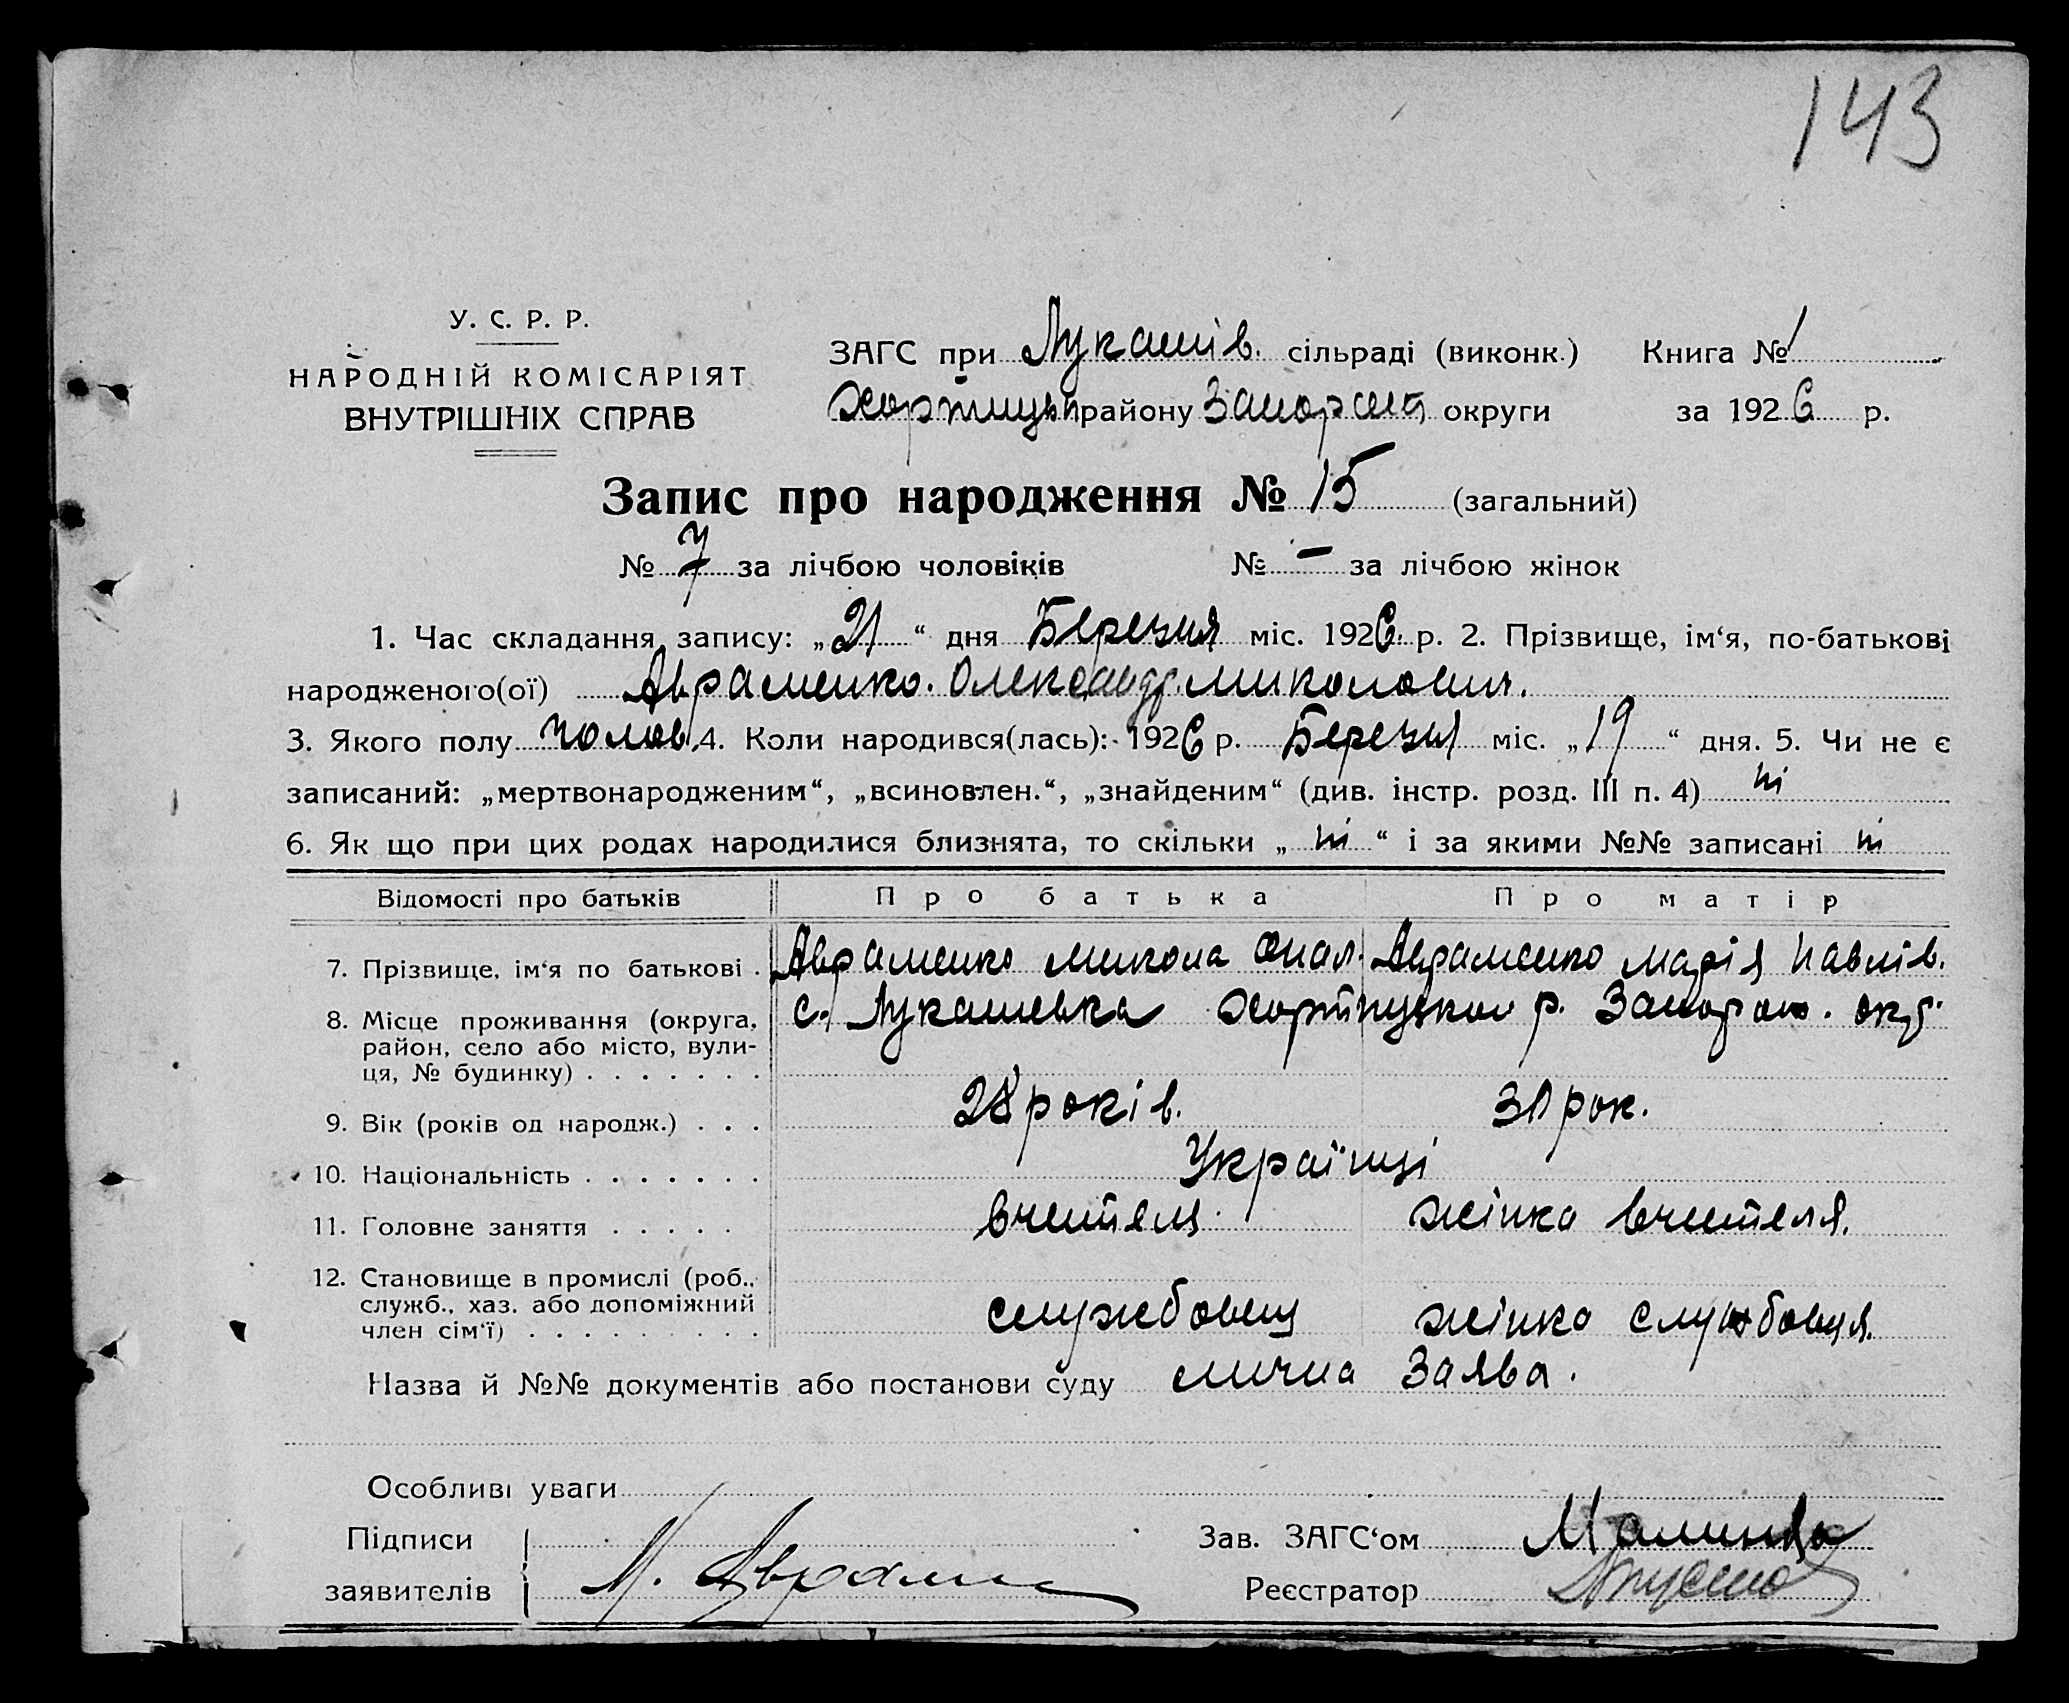 143
У. С. Р. Р.
НАРОДНІЙ КОМІСАРІЯТ
ВНУТРІШНІХ СПРАВ
ЗАГС при Лукашів. сільраді (виконк.) Книга № 1
Хортицьк району Запорізьк округи за 1926 р.
Запис про народження № 15 (загальний)
№ 7 за лічбою чоловіків № — за лічбою жінок
1. Час складання запису: „21“ дня Березня міс. 1926 р. 2. Прізвище, ім‘я, по-батькові
народженого(ої) Авраменко. Олександр. Миколович.
3. Якого полу чолов. 4. Коли народився(лась): 1926 р. Березня міс. „19“ дня. 5. Чи не є
записаний: „мертвонародженим“, „всиновлен.“, „знайденим“ (див. інстр. розд. III п. 4) ні
6. Як що при цих родах народилися близнята, то скільки „ні“ і за якими №№ записані ні
Відомості про батьків Про батька Про матір
7. Прізвище, ім‘я по батькові . Авраменко Микола Авраменко Марія Павлів.
8. Місце проживання (округа, с. Лукашевка Хортицьког р. окр.
район, село або місто, вули-
ця, № будинку) . . . . . . .
9. Вік (років од народж.) . . . 28 років. 31 рок.
10. Національність . . . . . . . Українці
11. Головне заняття . . . . . вчитель жінка вчителя.
12. Становище в промислі (роб.,
служб., хаз. або допоміжний службовець жінка службовця.
член сім‘ї) . . . . . . . . .
Назва й №№ документів або постанови суду лична Заява.
Особливі уваги
Підписи Зав. ЗАГС‘ом
заявителів М. Реєстратор